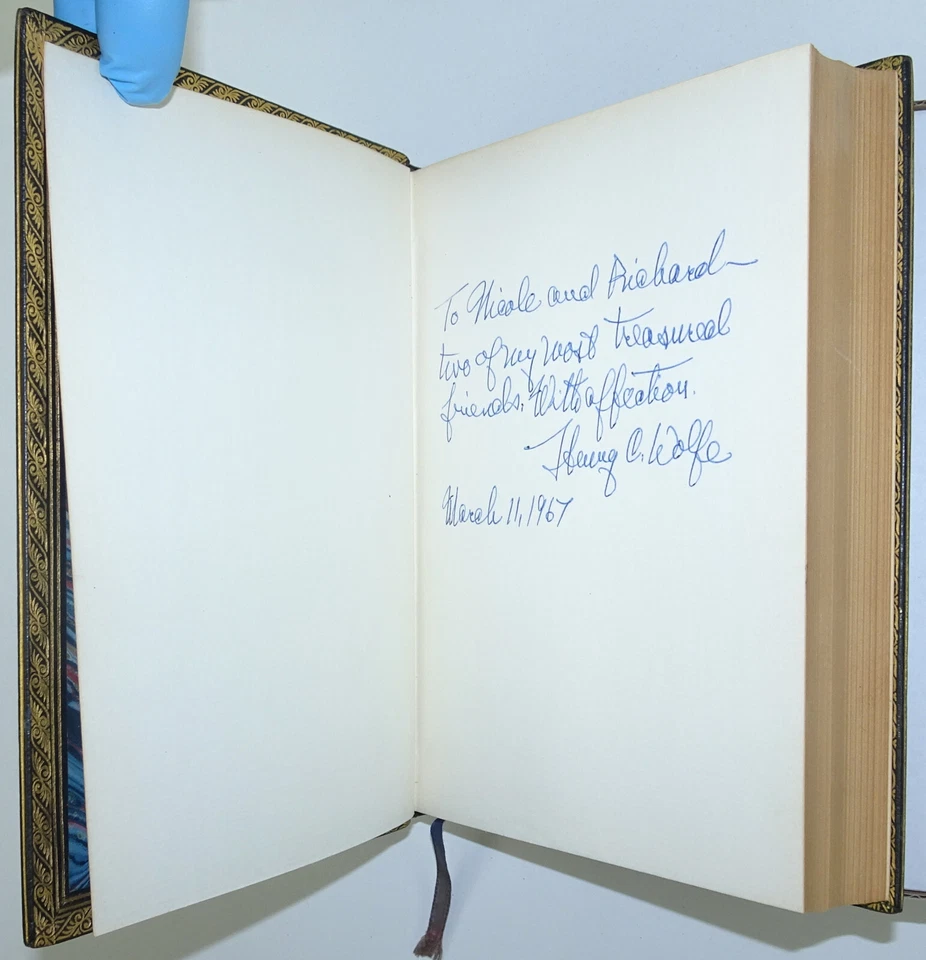 To Nicole and Richard—
two of my most treasured
friends. With affection.
Henry C. Wolfe
March 11, 1967